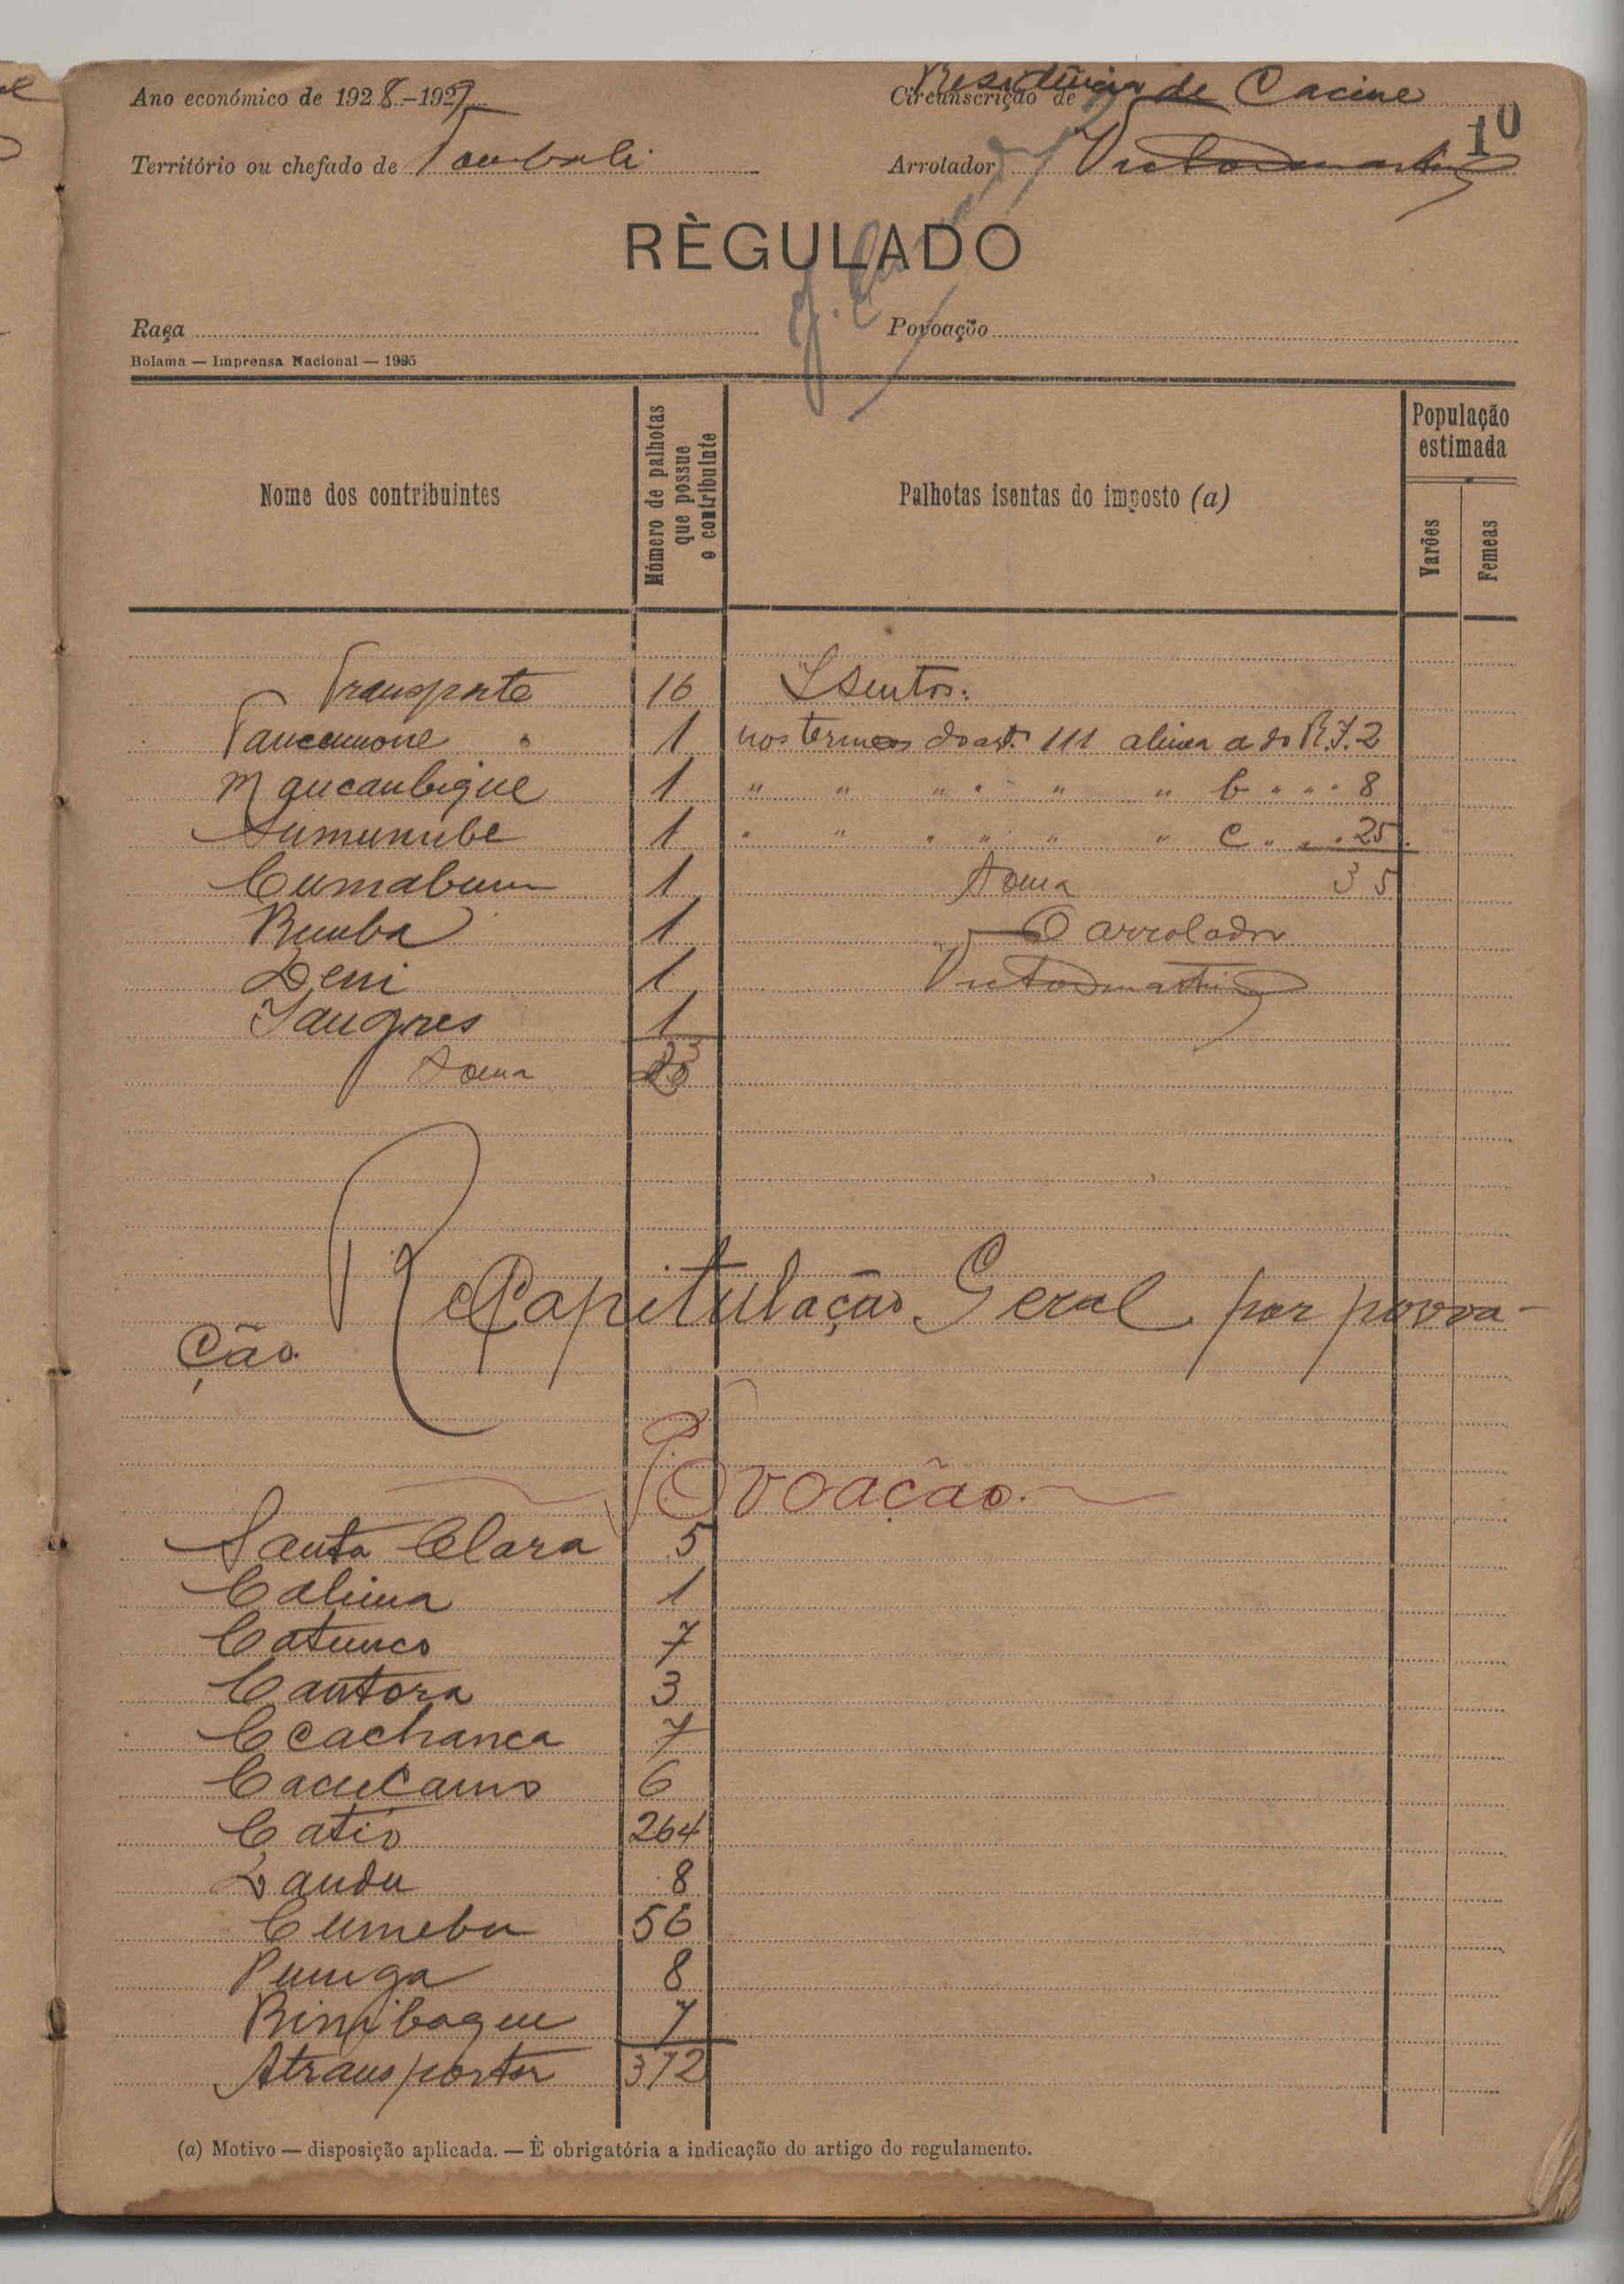 Ano económico de 1928-1929
Residência de Cacine
Circunscrição de
10
Território ou chefado de Tombali
Arrolador Victor Martins
RÈGULADO
Raça
Povoação
Bolama — Imprensa Nacional — 1925
Nome dos contribuintes
Número de palhotas que possue o contribuinte
Palhotas isentas do imposto (a)
População estimada
Varões
Femeas
Transporte 16 Isentos:
1 nos termos do art. 111 alinea a do R.I. 2
Maucaubique 1 " " " " " " b " " " 8
Sumunube 1 " " " " " " C " " " 25
Cumabum 1 Soma 35
Bumba 1 O arrolador
Deni 1 Victor Martins
1
Soma 23
Recapitulação Geral por povoa-
ção
Povoação
Santa Clara 5
Calima 1
Catunco 7
Cantora 3
Ccachanca 7
Cacucamo 6
Catió 264
Landu 8
Cumebu 56
Punuga 8
Binibaque 7
Atransportar 372
(a) Motivo — disposição aplicada. — É obrigatória a indicação do artigo do regulamento.